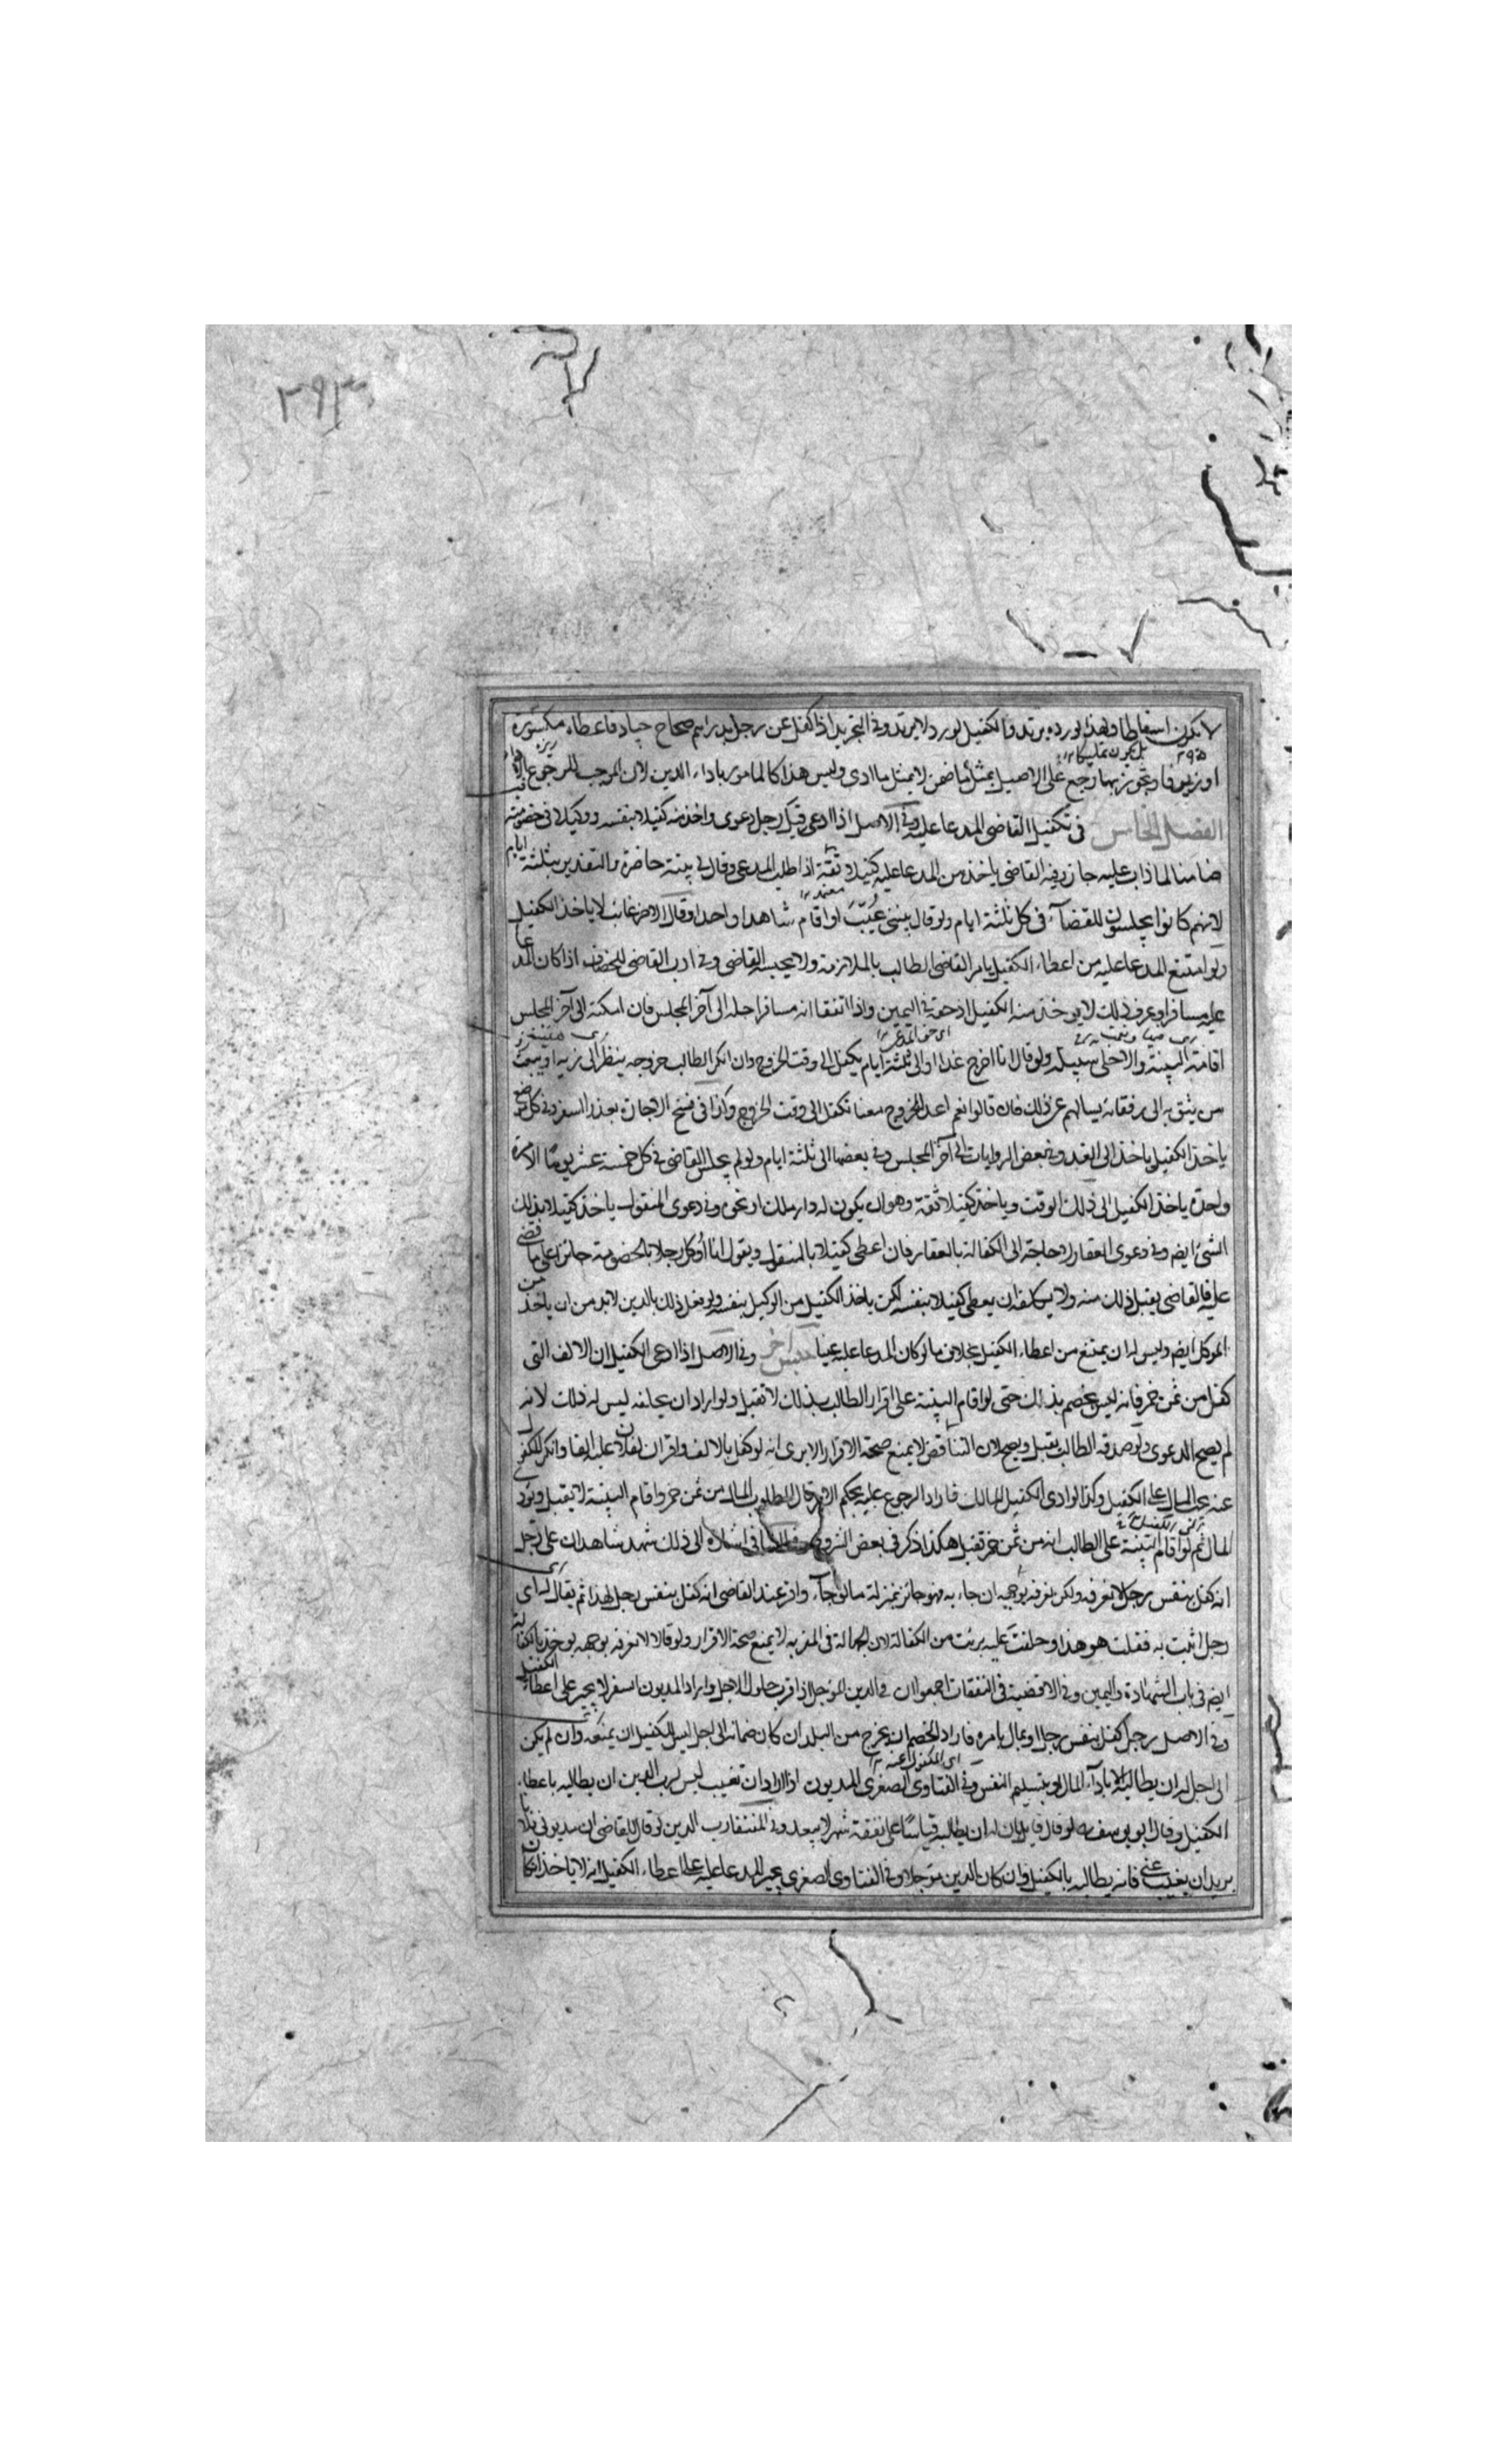 ٢٩٣
لا يكون اسقاطا ولهذا لو رده يرتد والكفيل لو رد لا يرتد وفى التجريد اذا كفل عن رجل بدراهم صحاح جياد فاعطاه مكسورة
او زيوفا وتجوز بها رجع على الاصيل بمثل ما ضمن لا بمثل ما ادى وليس هذا كالمامور باداء الدين لان الموجب للرجوع
الفصل الخامس فى تكفيل القاضى المدعا عليه وفى الاصل اذا ادعى قبل رجل دعوى واخذ منه كفيلا بنفسه ووكيلا فى خصومته
ضامنا لما ذاب عليه جاز وفيه القاضى ياخذ من المدعا عليه كفيلا ثقة اذا طلب المدعى وقال لى بينة حاضرة والتقدير بثلثة ايام
لانهم كانوا يجلسون للقضاء فى كل ثلثة ايام ولو قال بينتى غيب او اقام شاهدا واحدا وقال الاخر غائب لا ياخذ الكفيل
ولو امتنع المدعا عليه من اعطاء الكفيل يامر القاضى الطالب بالملازمة ولا يحبسه القاضى وفى ادب القاضى للخصاف اذا كان المدعا
عليه مسافرا وعرف ذلك لا يوخذ منه الكفيل اذ حقه فى اليمين واذا اتفقا انه مسافر اجله الى آخر المجلس فان امكنه الى آخر المجلس
اقامة البينة والا خلى سبيله ولو قال انا اخرج غدا او الى ثلثة ايام يكفل الى وقت الخروج وان انكر الطالب خروجه ينظر الى زيه او يبعث
من يثق به الى رفقائه يسالهم عن ذلك فان قالوا نعم اعد للخروج معنا تكفل الى وقت الخروج وكذا فى فسخ الاجارة بعذر السفر وفى كل موضع
ياخذ الكفيل ياخذ الى الغد وفى بعض الروايات الى آخر المجلس وفى بعضها الى ثلثة ايام ولو لم يجلس القاضى فى كل خمسة عشر يوما الا مرة
واحدة ياخذ الكفيل الى ذلك الوقت وياخذ كفيلا ثقة وهو ان يكون له دار ملك او نحوه وفى دعوى المنقول ياخذ كفيلا بذلك
الشئ ايضا وفى دعوى العقار لا حاجة الى الكفالة بالعقار فان اعطى كفيلا بالمنقول ويقول انا اوكل رجلا بالخصومة جائزا على ما قضى
عليه فالقاضى يقبل ذلك منه ولا يكلفه ان يعطى كفيلا بنفسه لكن ياخذ الكفيل من الوكيل بنفسه ولو فعل ذلك بالدين لا بد من ان ياخذ من
الموكل ايضا وليس له ان يمتنع من اعطاء الكفيل بخلاف ما لو كان المدعا عليه عينا جنس آخر وفى الاصل اذا ادعى الكفيل ان الالف التى
كفل من ثمن خمر فانه ليس بخصم بذلك حتى لو اقام البينة على اقرار الطالب بذلك لا تقبل ولو اراد ان يحلفه ليس له ذلك لانه
لم يصح الدعوى ولو صدقه الطالب يقبل ويصح لان التناقض لا يمنع صحة الاقرار الا يرى انه لو كفل بالالف واقر ان لفلان عليه الفا وانكر المكفول
عنه يجب المال على الكفيل وكذا لو ادى الكفيل المال فاراد الرجوع عليه بحكم الامر قال المطلوب المال من ثمن خمر واقام البينة لا يقبل ويؤدى
المال ثم لو اقام البينة على الطالب انه من ثمن خمر تقبل هكذا ذكر فى بعض الشروح الى ذلك شهد شاهدان على رجل
انه كفل بنفس رجل لا نعرفه ولكن نعرفه بوجهه ان جاء به فهو جائز بمنزلة ما لو جاء واقر عند القاضى انه كفل بنفس رجل لهذا ثم يقال له اى
رجل اثبت به فقلت هو هذا وحلفت عليه برئت من الكفالة لان الجهالة فى المقر به لا يمنع صحة الاقرار ولو قالا لا نعرفه بوجهه يوخذ بالكفالة
ايضا فى باب الشهادة واليمين وفى الاقضية فى النفقات اجمعوا ان فى الدين المؤجل اذا قرب حلول الاجل واراد المديون السفر لا يجبر على اعطاء الكفيل
وفى الاصل رجل كفل بنفس رجل او بمال بامره فاراد الخصم ان يخرج من البلد ان كان ضمانه الى اجل ليس للكفيل ان يمنعه وان لم يكن
الى اجل له ان يطالبه اما باداء المال او بتسليم النفس وفى الفتاوى الصغرى المديون اذا اراد ان تغيب ليس لرب الدين ان يطالبه باعطاء
الكفيل وقال ابو يوسف لو قال قائل بان له ان يطالبه قياسا على نفقة شهر لا يبعد وفى المنتقا رب الدين لو قال للقاضى ان مديونى فلانا
يريد ان يغيب عنى فانه يطالبه بالكفيل وان كان الدين مؤجلا وفى الفتاوى الصغرى يجبر المدعا عليه على اعطاء الكفيل انه لا ياخذ اذا كان